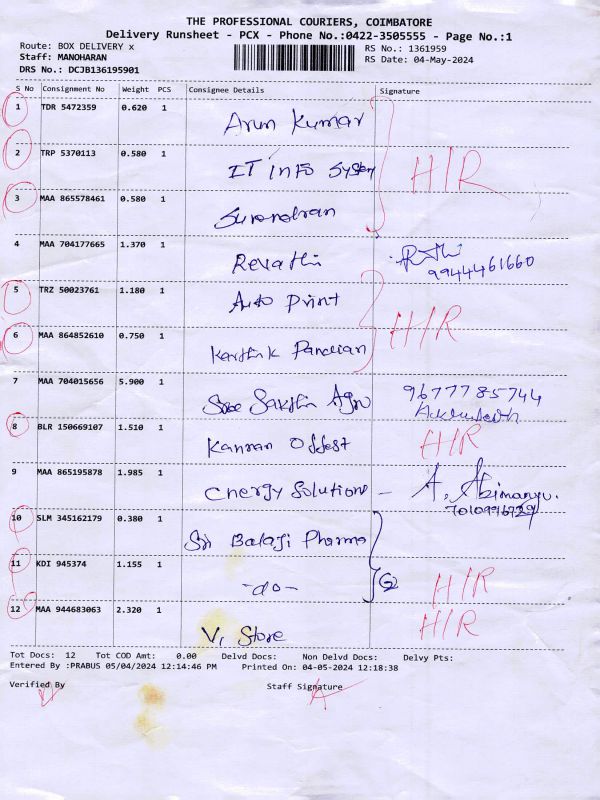 THE PROFESSIONAL COURIERS, COIMBATORE
Delivery Runsheet - PCX - Phone No.:0422-3505555 - Page No.:1
Route: BOX DELIVERY x RS No.: 1361959
Staff: MANOHARAN RS Date: 04-May-2024
DRS No.: DCJB136195901
S No Consignment No Weight PCS Consignee Details Signature
1 TDR 5472359 0.620 1 Arun Kumar
2 TRP 5370113 0.580 1 IT info System H/R
3 MAA 865578461 0.580 1 Surendran
4 MAA 704177665 1.370 1 Revathi
9944461660
5 TRZ 50023761 1.180 1 Auto Print
6 MAA 864852610 0.750 1 Karthik Pandian H/R
7 MAA 704015656 5.900 1 Sree Sakthi Agro 9677785744
8 BLR 150669107 1.510 1 Kannan Offest H/R
9 MAA 865195878 1.985 1 Energy Solution - A. Abimanyu.
7010996729
10 SLM 345162179 0.380 1 Sri Balaji Pharma
11 KDI 945374 1.155 1 -do- 2 H/R
12 MAA 944683063 2.320 1 V, Store H/R
Tot Docs: 12 Tot COD Amt: 0.00 Delvd Docs: Non Delvd Docs: Delvy Pts:
Entered By :PRABUS 05/04/2024 12:14:46 PM Printed On: 04-05-2024 12:18:38
Verified By Staff Signature